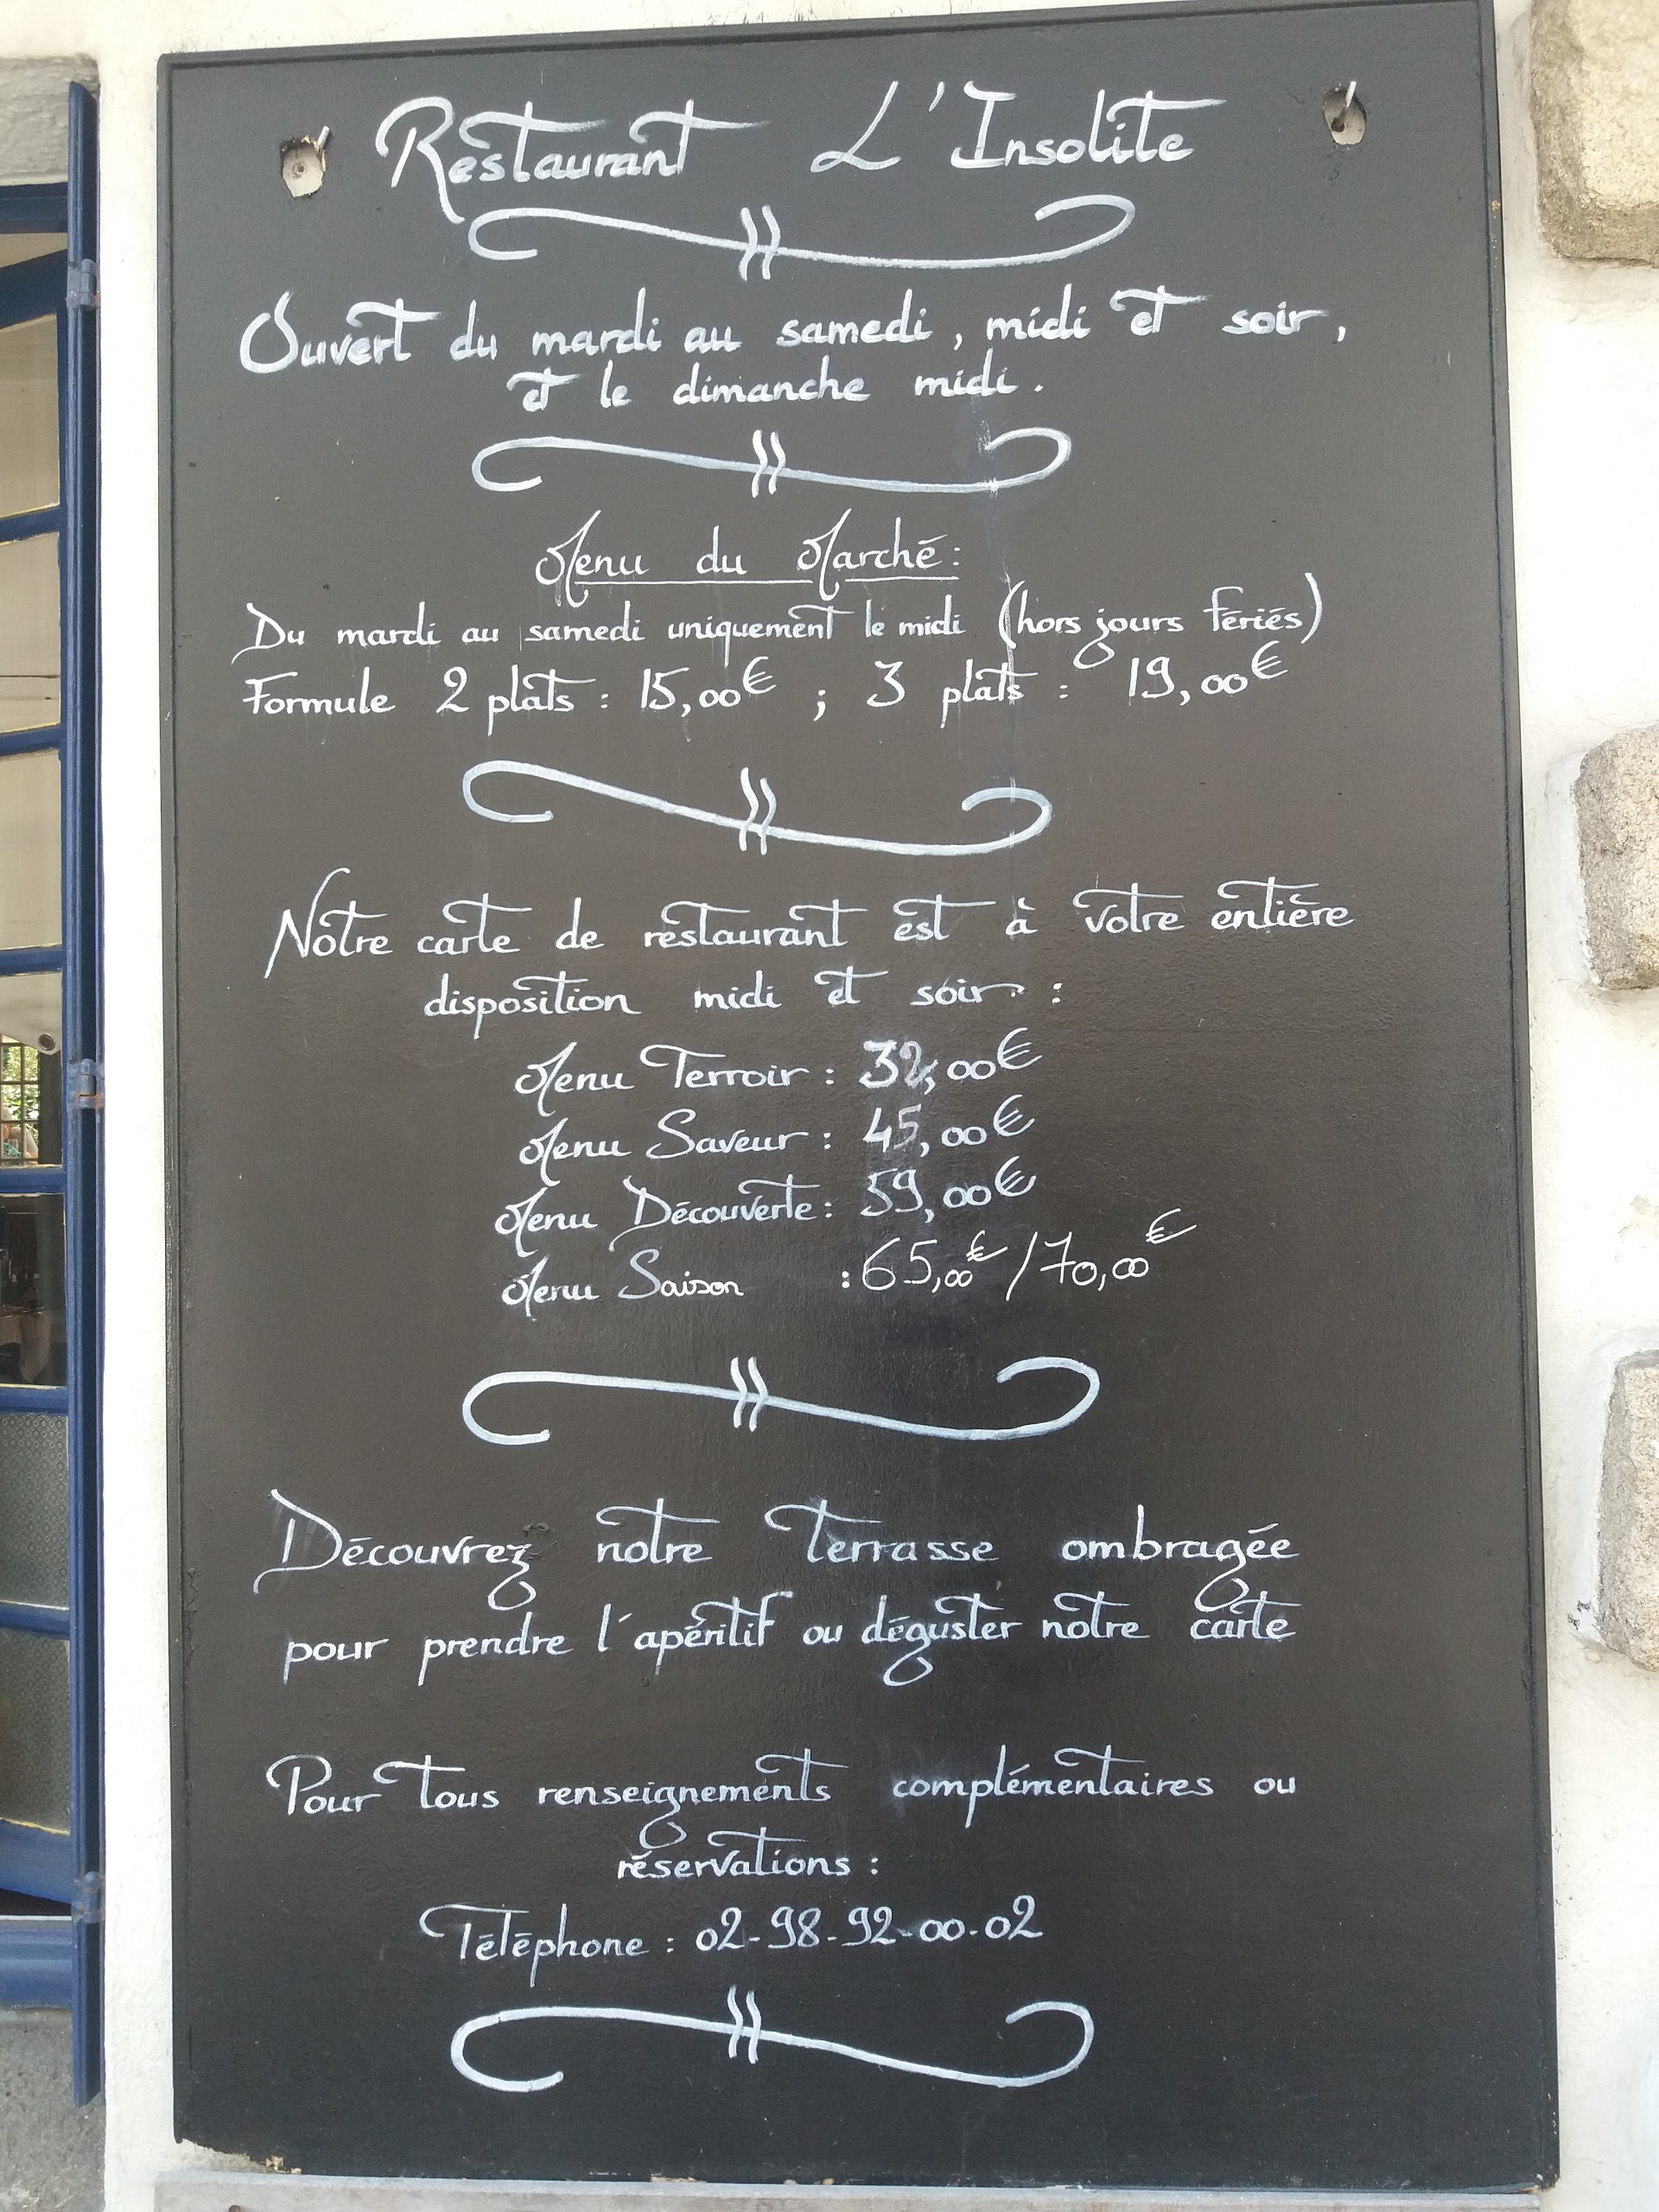 Restaurant L'Insolite
Ouvert du mardi au samedi, midi et soir,
et le dimanche midi.
Menu du Marché:
Du mardi au samedi uniquement le midi (hors jours fériés)
Formule 2 plats : 15,00€ ; 3 plats : 19,00€
Notre carte de restaurant est à votre entière
disposition midi et soir :
Menu Terroir : 32,00€
Menu Saveur : 45,00€
Menu Découverte : 59,00€
Menu Saison : 65,00€/70,00€
Découvrez notre terrasse ombragée
pour prendre l'apéritif ou déguster notre carte
Pour tous renseignements complémentaires ou
réservations :
Téléphone : 02-98-92-00-02